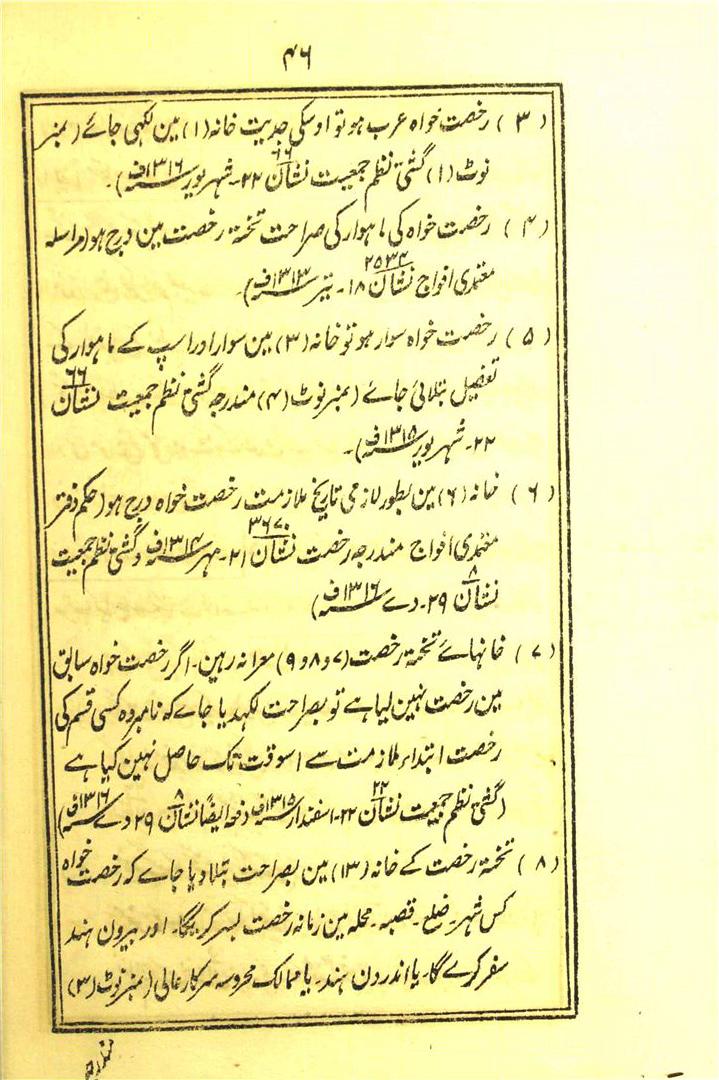 ۴۶
(۳) رخصت خواہ عرب ہو تو اوسکی جدیت خانہ (۱) مین لکھی جائے (نمبر
نوٹ (۱) گشتی نظم جمعیت نشان ۶۶ ۲۲۔ شہریور سنہ ۱۳۱۶ف)۔
(۴) رخصت خواہ کی ماہوار کی صراحت تختہ رخصت مین درج ہو (مراسلہ
معتمدی افواج نشان ۲۵۳۴ ۱۸۔ تیر سنہ ۱۳۱۳ف)۔
(۵) رخصت خواہ سوار ہو تو خانہ (۳) مین سوار اور اسپ کے ماہوار کی
تفصیل بتلائی جائے (نمبر نوٹ (۴) مندرجہ گشتی نظم جمعیت نشان ۶۶
۲۲۔ شہریور سنہ ۱۳۱۵ف)۔
(۶) خانہ (۶) مین بطور لازمی تاریخ ملازمت رخصت خواہ درج ہو (حکم دفتر
معتمدی افواج مندرجہ رخصت نشان ۳۶۷۰ ۲۱۔ مہر سنہ ۱۳۱۴ف و گشتی نظم جمعیت
نشان ۸ ۲۹۔ دے سنہ ۱۳۱۶ف)
(۷) خانہائے تختہ رخصت (۷ و ۸ و ۹) معرا نہ رہین۔ اگر رخصت خواہ سابق
مین رخصت نہین لیا ہے تو بصراحت لکہدیا جاے کہ نامبردہ کسی قسم کی
رخصت ابتداء ملازمت سے اسوقت تک حاصل نہین کیا ہے
(گشتی نظم جمعیت نشان ۲۲ ۲۲۔ اسفندار سنہ ۱۳۱۵ف دفعہ ایضاً نشان ۸ ۲۹ دے سنہ ۱۳۱۶ف)
(۸) تختہ رخصت کے خانہ (۱۳) مین بصراحت بتلا دیا جاے کہ رخصت خواہ
کس شہر۔ ضلع۔ قصبہ۔ محلہ مین زمانہ رخصت بسر کریگا۔ اور بیرون ہند
سفر کرے گا۔ یا اندرون ہند۔ یا ممالک محروسہ سرکار عالی (نمبر نوٹ (۳)
مندرجہ